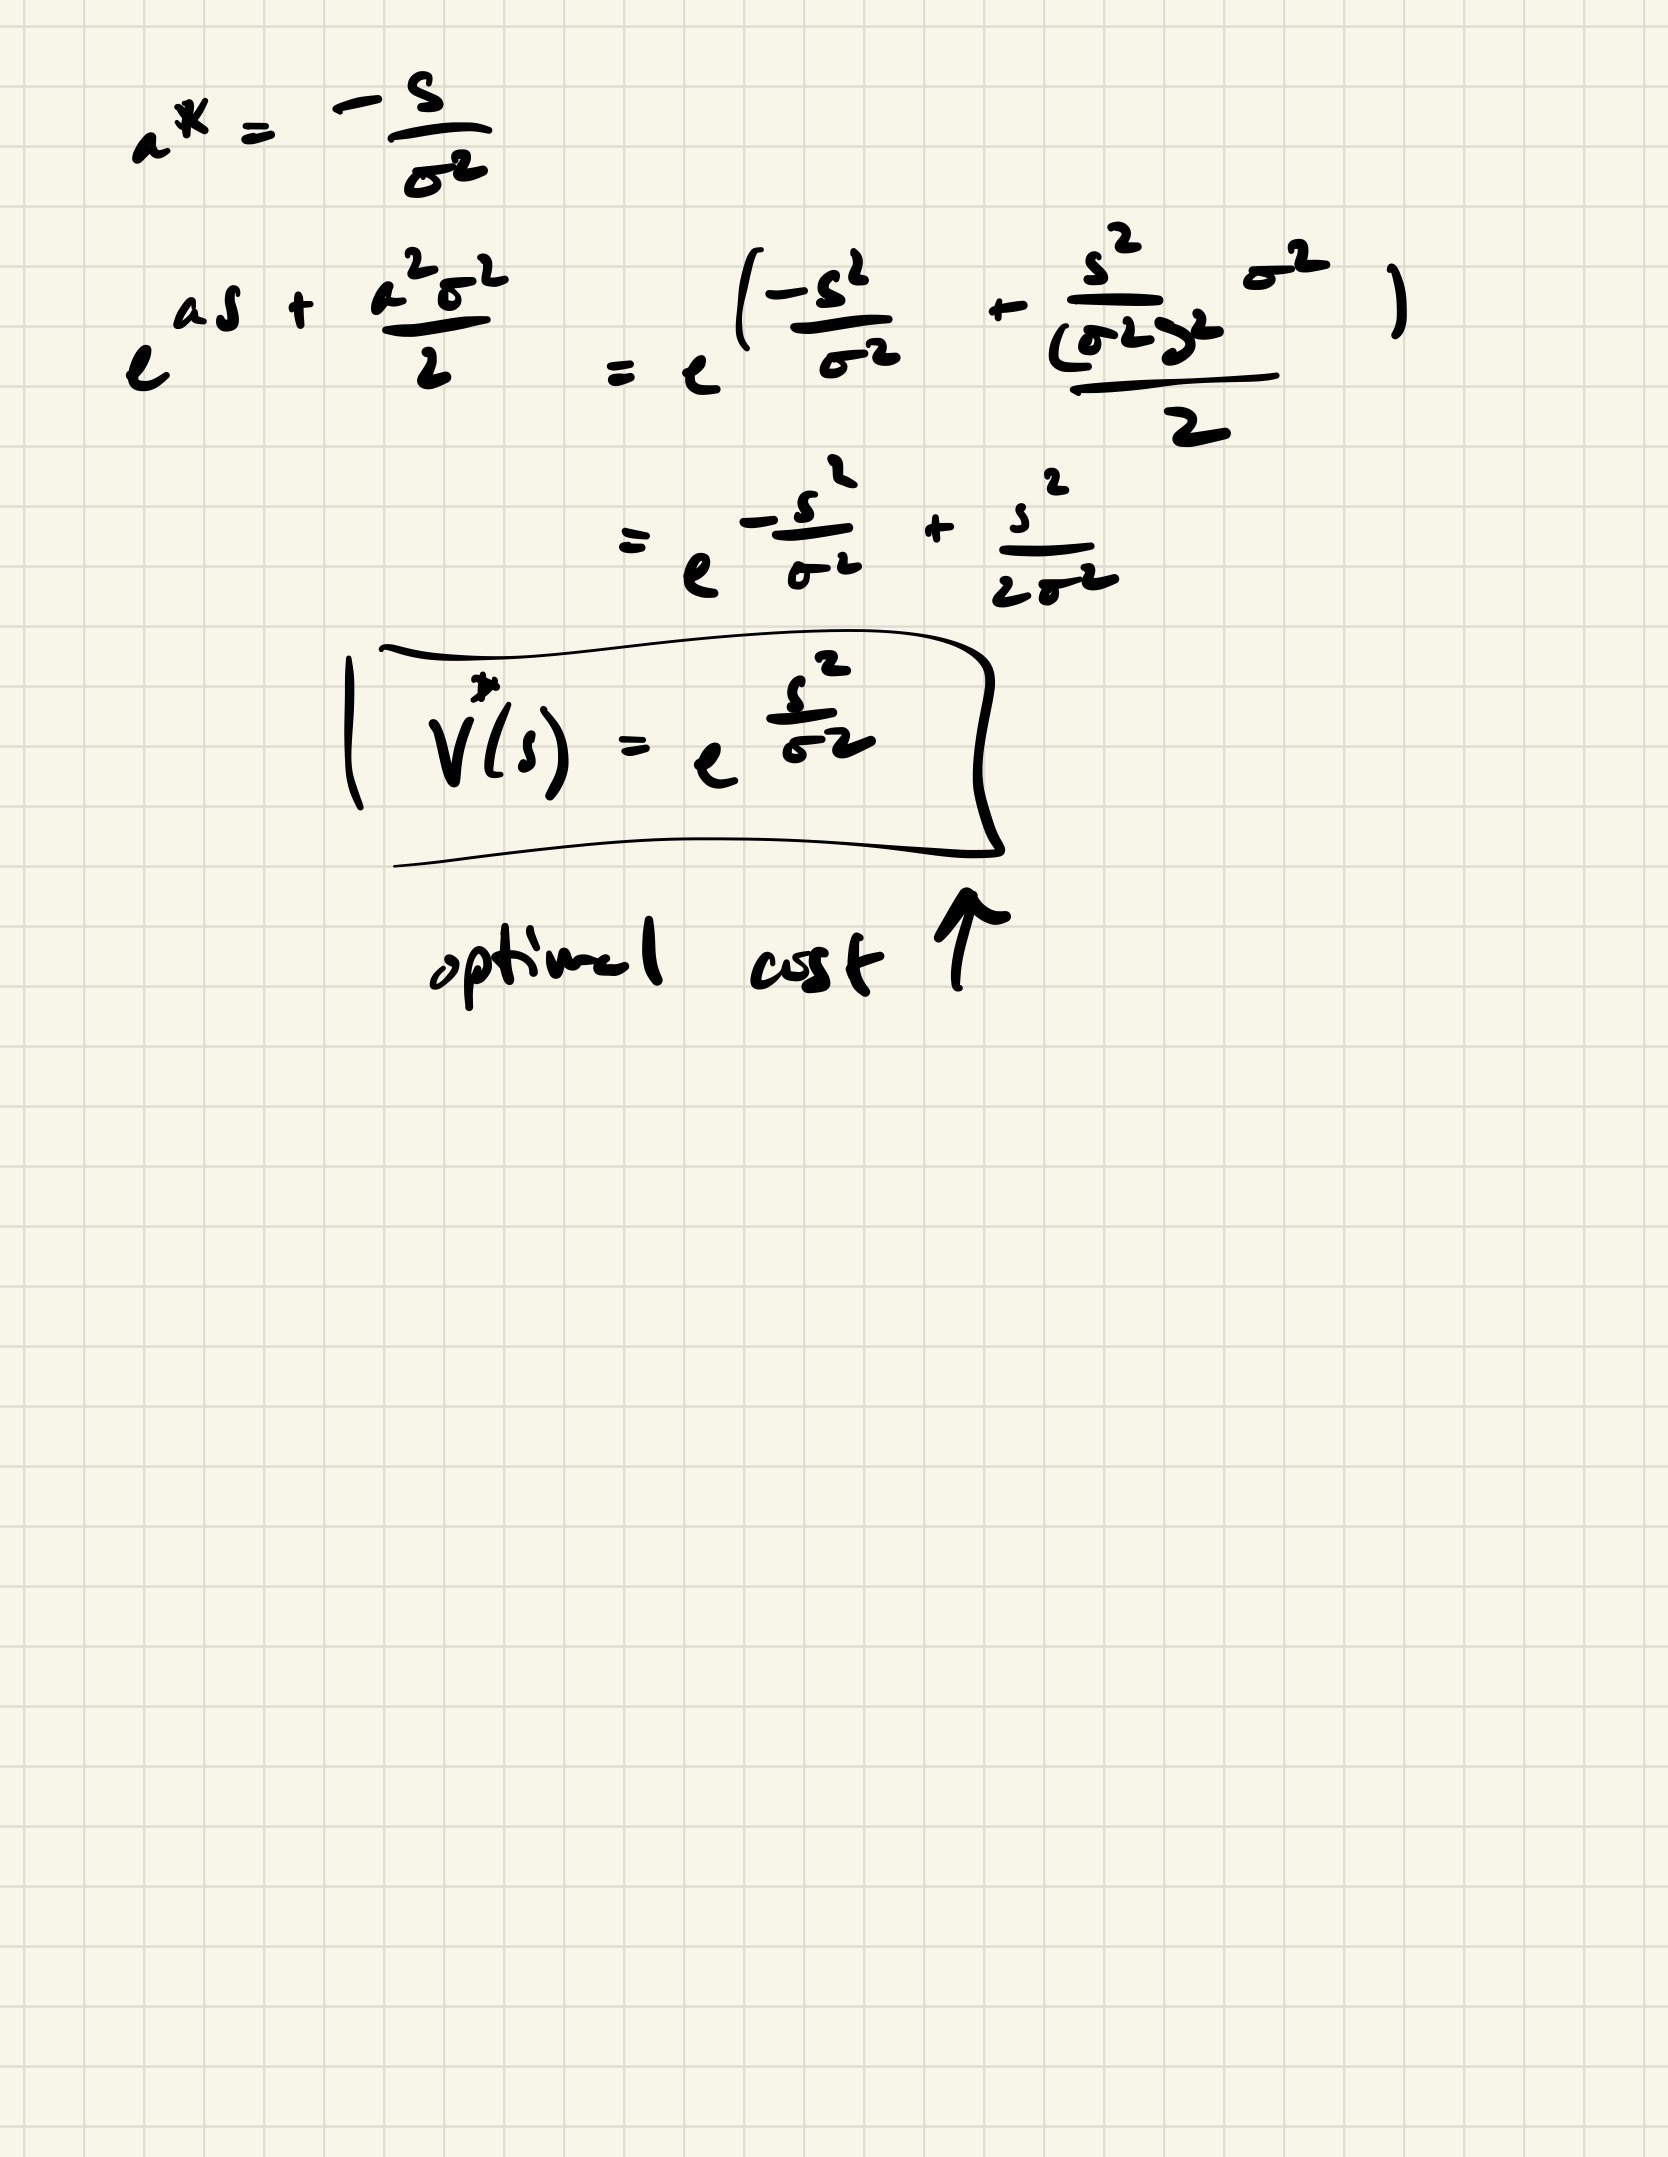 a* = -s/σ²
e^(as + a²σ²/2) = e^(-s²/σ² + (s²/(σ²)² σ²)/2)
= e^(-s²/σ² + s²/(2σ²))
V*(s) = e^(s²/σ²)
optimal cost ↑